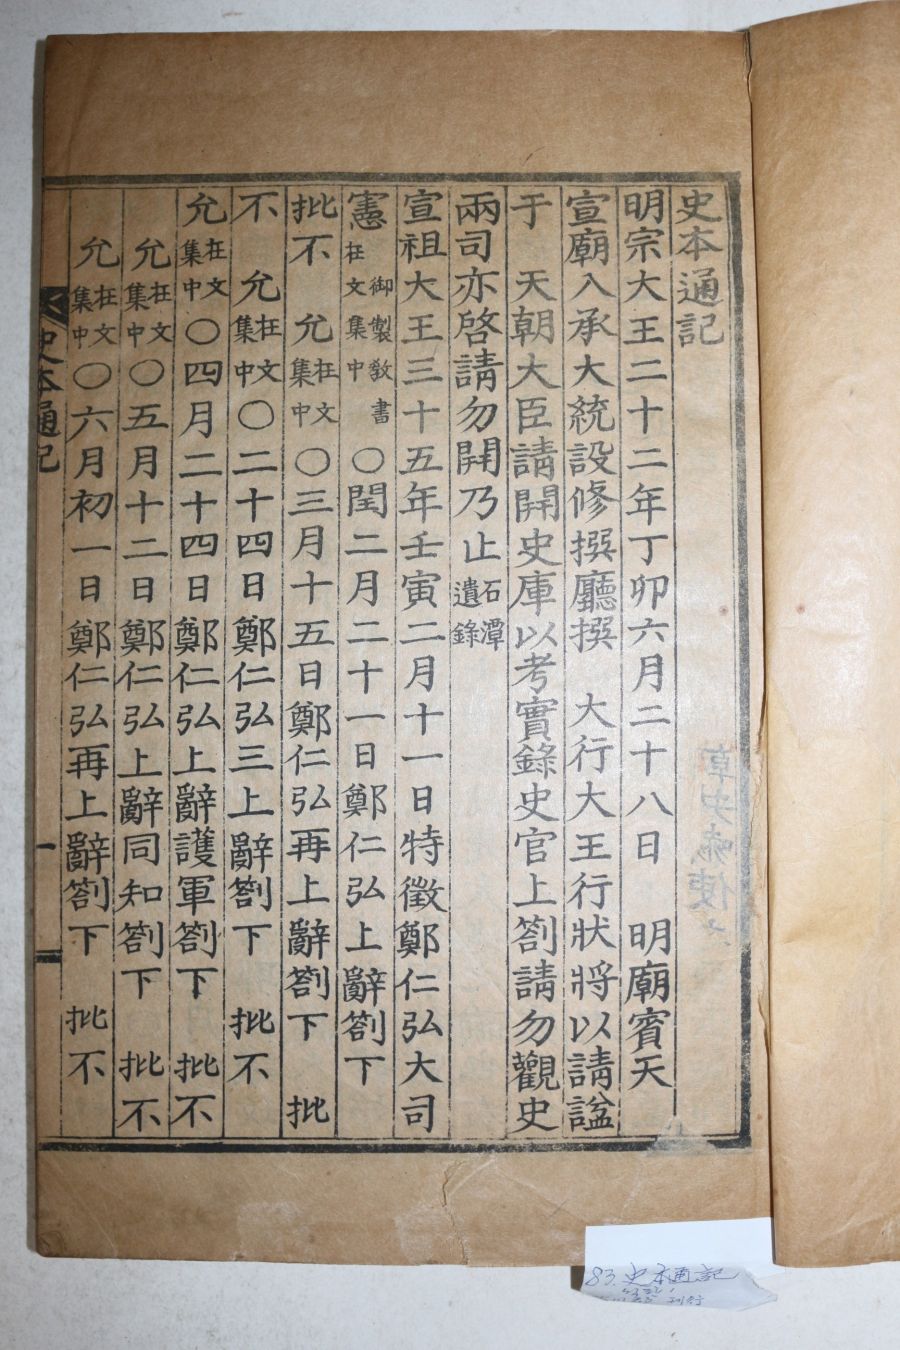 史本通記
明宗大王二十二年丁卯六月二十八日 明廟賓天
宣廟入承大統設修撰廳撰 大行大王行狀將以請諡
于 天朝大臣請開史庫以考實錄史官上劄請勿觀史
兩司亦啓請勿開乃止石潭遺錄
宣祖大王三十五年壬寅二月十一日特徵鄭仁弘大司
憲御製敎書在文集中○閏二月二十一日鄭仁弘上辭劄下
批不 允在文集中○三月十五日鄭仁弘再上辭劄下 批
不 允在文集中○二十四日鄭仁弘三上辭劄下 批不
允在文集中○四月二十四日鄭仁弘上辭護軍劄下 批不
允在文集中○五月十二日鄭仁弘上辭同知劄下 批不
允在文集中○六月初一日鄭仁弘再上辭劄下 批不
史本通記
一
83.史本通記
刊行